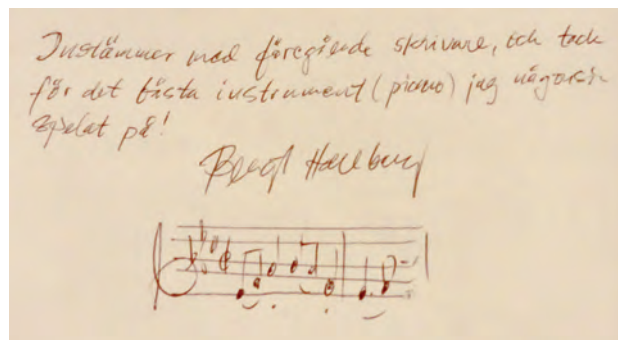 Instämmer med föregående skrivare, och tack
för det bästa instrument (piano) jag någonsin
spelat på!
Bengt Hallberg